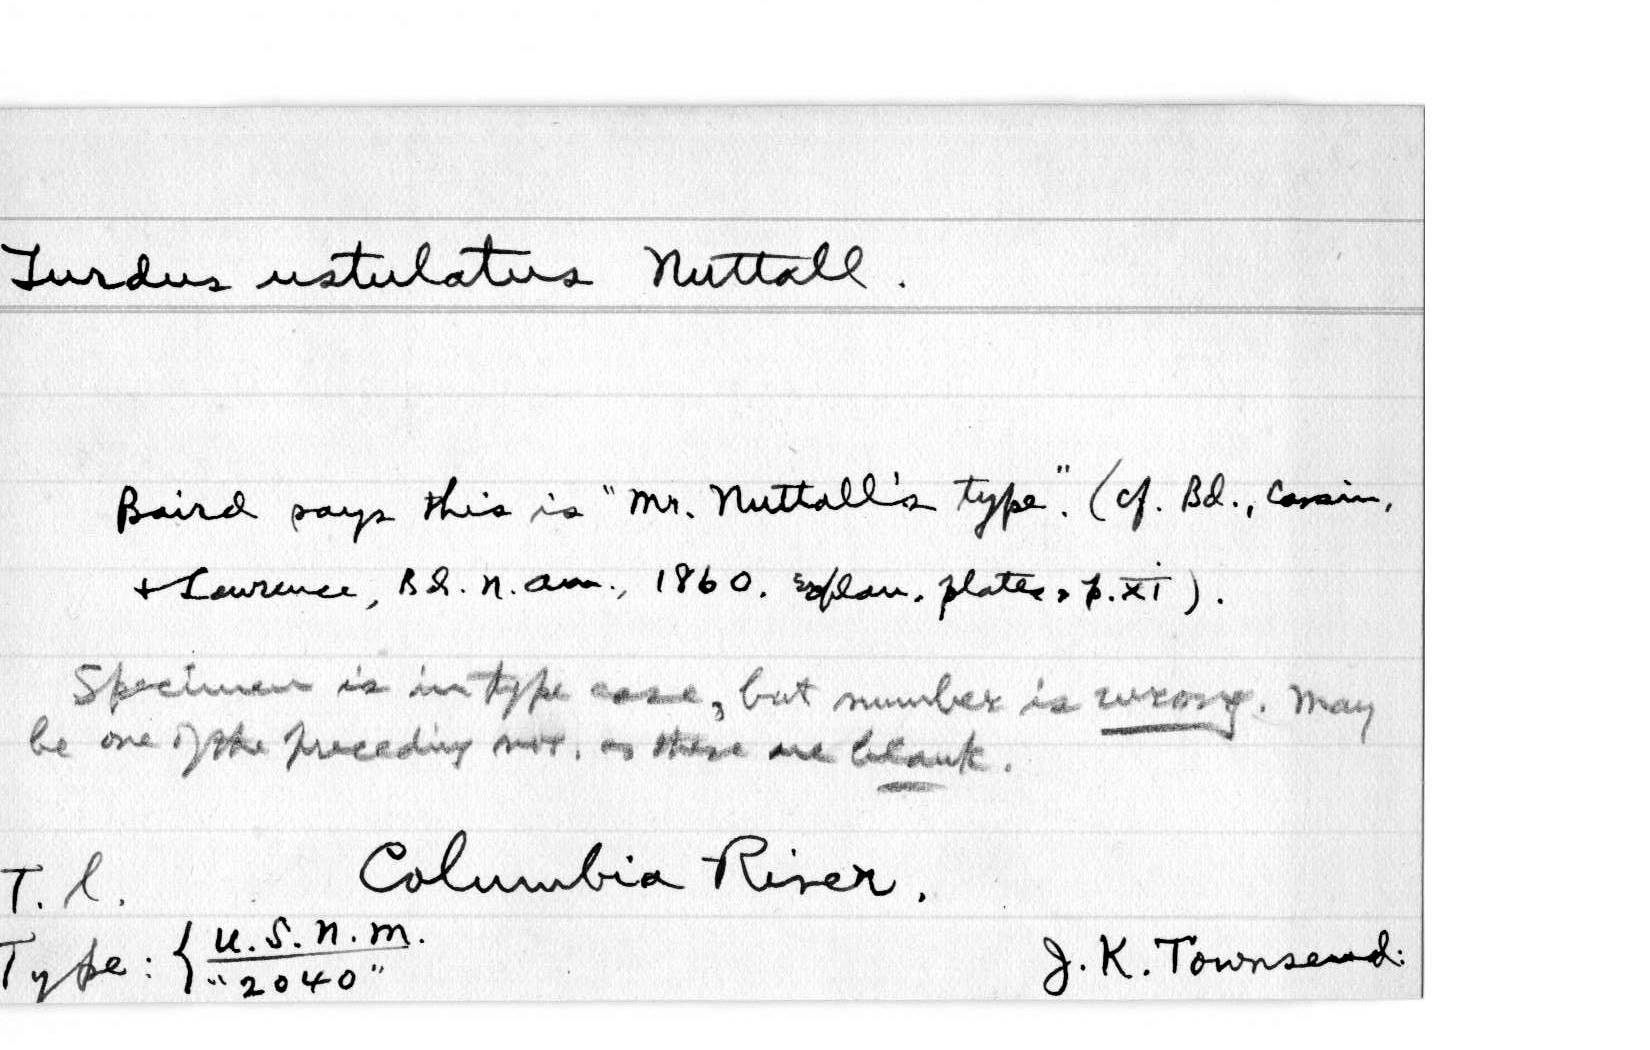 Turdus ustulatus Nuttall.
Baird says this is "Mr. Nuttall's type". (cf. Bd., Cassin,
+ Lawrence, Bd. N. Am., 1860. Explan. plates, p. xi).
Specimen is in type case, but number is wrong. May
be one of the preceding nos. as these are blank.
T. l. Columbia River.
Type: { U.S.N.M. J. K. Townsend:
"2040"